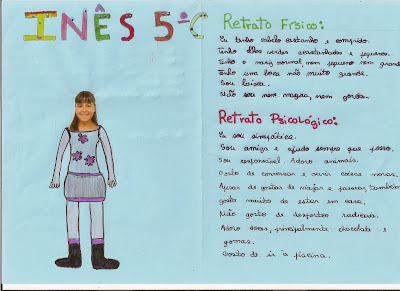 INÊS 5ºC
Retrato Físico:
Eu tenho cabelo castanho e comprido.
Tenho olhos verdes acastanhados e pequenos.
Tenho o nariz normal, nem pequeno nem grande.
Tenho uma boca não muito grande.
Sou baixa.
Não sou nem magra, nem gorda.
Retrato Psicológico:
Eu sou simpática.
Sou amiga e ajudo sempre que posso.
Sou responsável. Adoro animais.
Gosto de conversar e ouvir coisas novas.
Apesar de gostar de viajar e passear, também
gosto muito de estar em casa.
Não gosto de desportos radicais.
Adoro doces, principalmente chocolate e
gomas.
Gosto de ir à piscina.